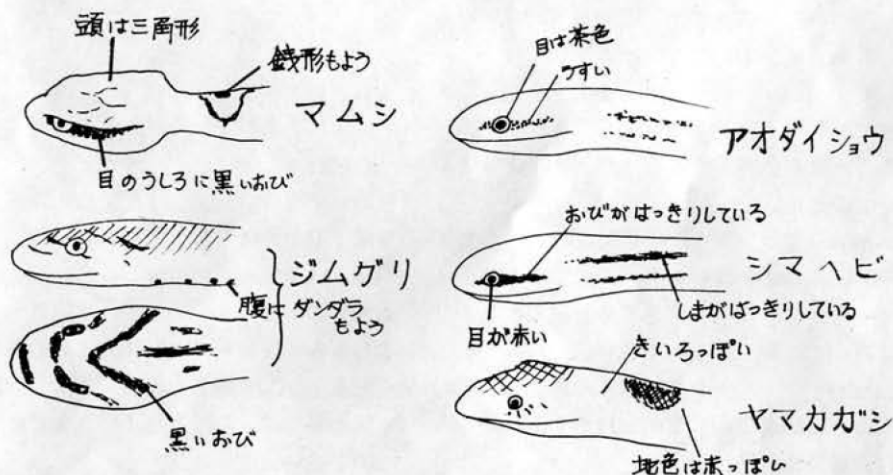 頭は三角形
銭形もよう
マムシ
目のうしろに黒いおび
ジムグリ
腹にダンダラ
もよう
黒いおび
目は茶色
うすい
アオダイショウ
おびがはっきりしている
シマヘビ
しまがはっきりしている
目が赤い
きいろっぽい
ヤマカガシ
地色は赤っぽい